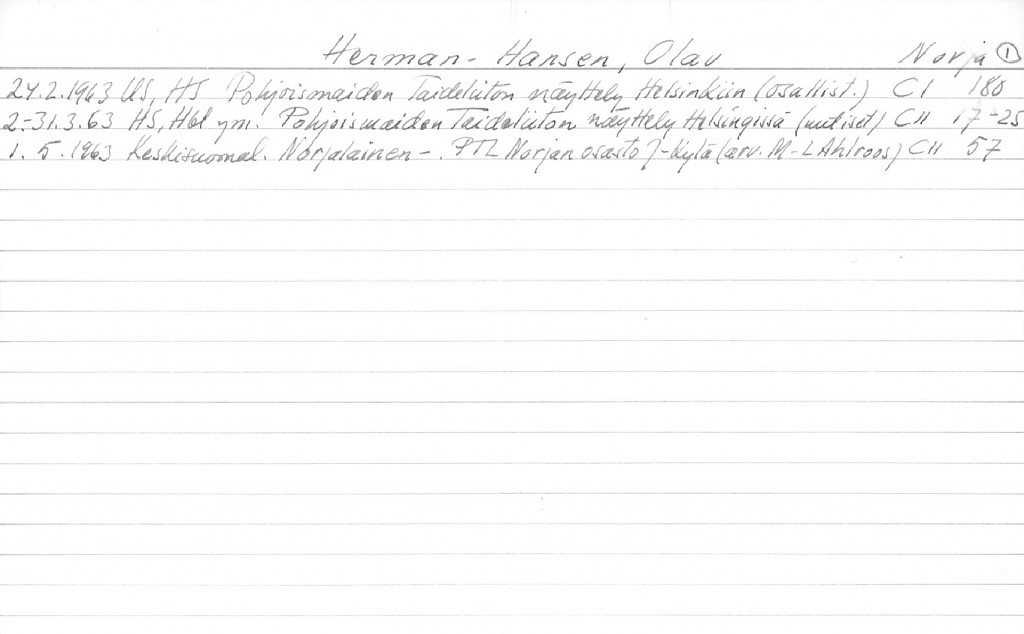 Herman-Hansen, Olav Norja 1
24.2.1963 US, HS Pohjoismaiden Taideliiton näyttely Helsinkiin (osallist.) CI 180
2.-31.3.63 HS, Hbl ym. Pohjoismaiden Taideliiton näyttely Helsingissä (uutiset) CII 17-25
1.5.1963 Keskisuomal. Norjalainen-. PTL Norjan osasto J-kylä (arv. M-L Ahlroos) CII 57